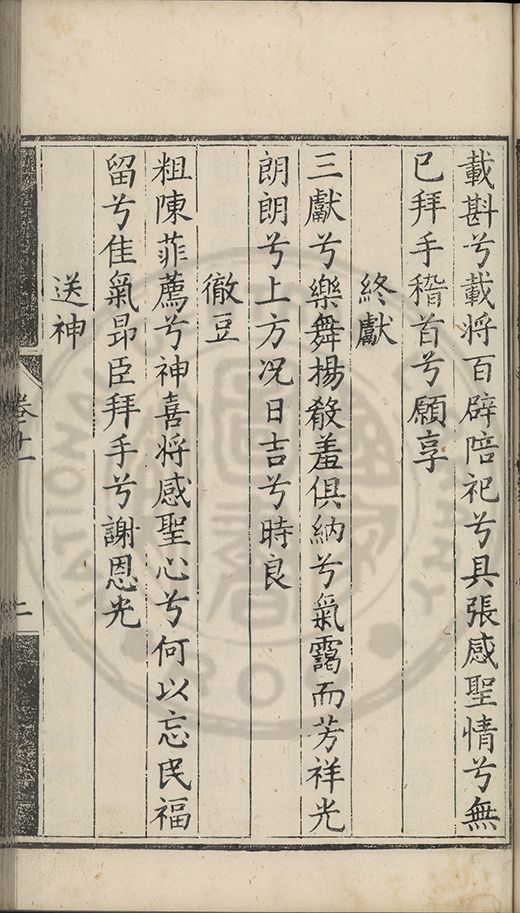 載斟兮載将百辟陪祀兮具張感聖情兮無
已拜手稽首兮願享
終獻
三獻兮樂舞揚殽羞俱納兮氣靄而芳祥光
朗朗兮上方况日吉兮時良
徹豆
粗陳菲薦兮神喜将感聖心兮何以忘民福
留兮佳氣昂臣拜手兮謝恩光
送神